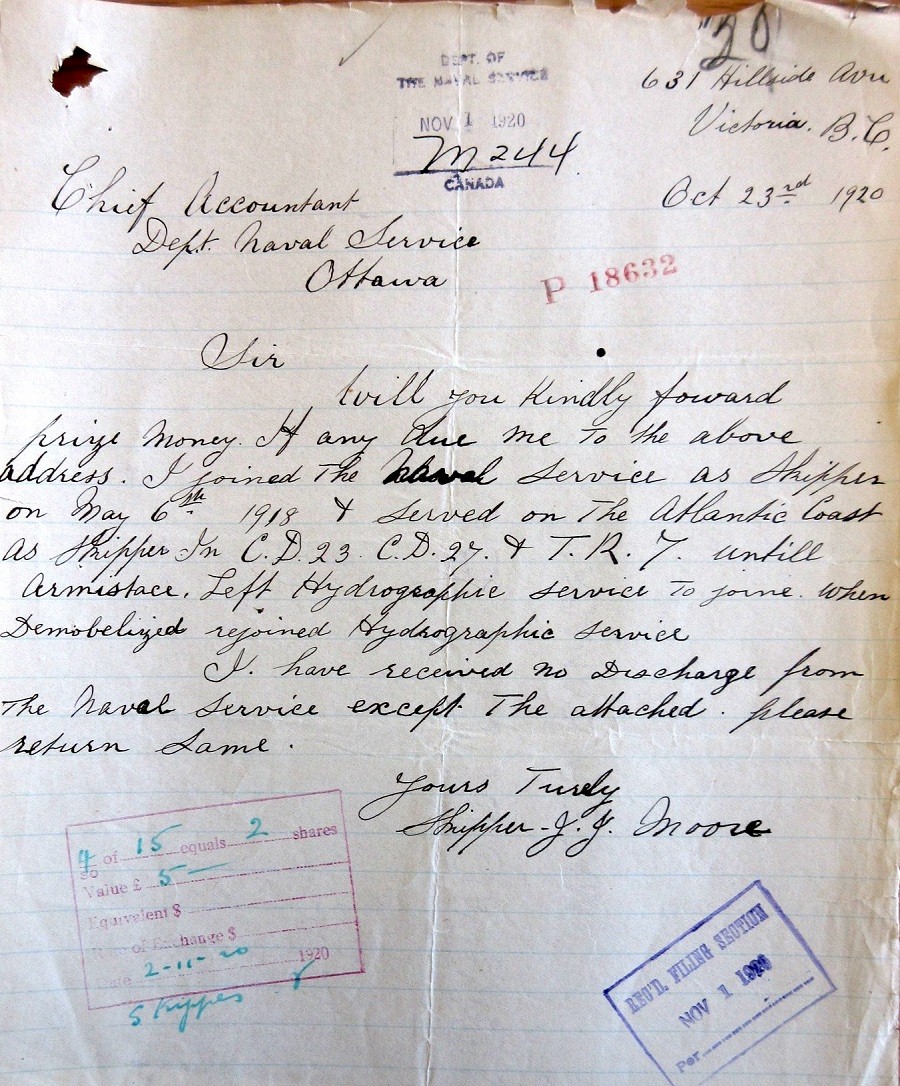 "20"
DEPT. OF
THE NAVAL SERVICE
NOV 1 1920
M 244
CANADA
631 Hillside Ave
Victoria. B.C.
Oct 23rd 1920
Chief Accountant
Dept. Naval Service
Ottawa
P 18632
Sir
Will you Kindly foward
prize money. If any due me to the above
address. I joined The Naval service as Skipper
on May 6th 1918 & served on The Atlantic Coast
As Skipper In C.D. 23 C.D. 27. & T.R. 7. untill
Armistace. Left Hydrographic service To joine. When
Demobelized rejoined Hydrographic service
I. have received no Discharge from
The Naval service except The attached. please
return same.
Yours Turely
Skipper - J. J. Moore
4 of 15 equals 2 shares
80
Value £ 5 —
Equivalent $
Rate of Exchange $
Date 2-11-20 1920
Skipper
REC'D. FILING SECTION
NOV 1 1920
Per